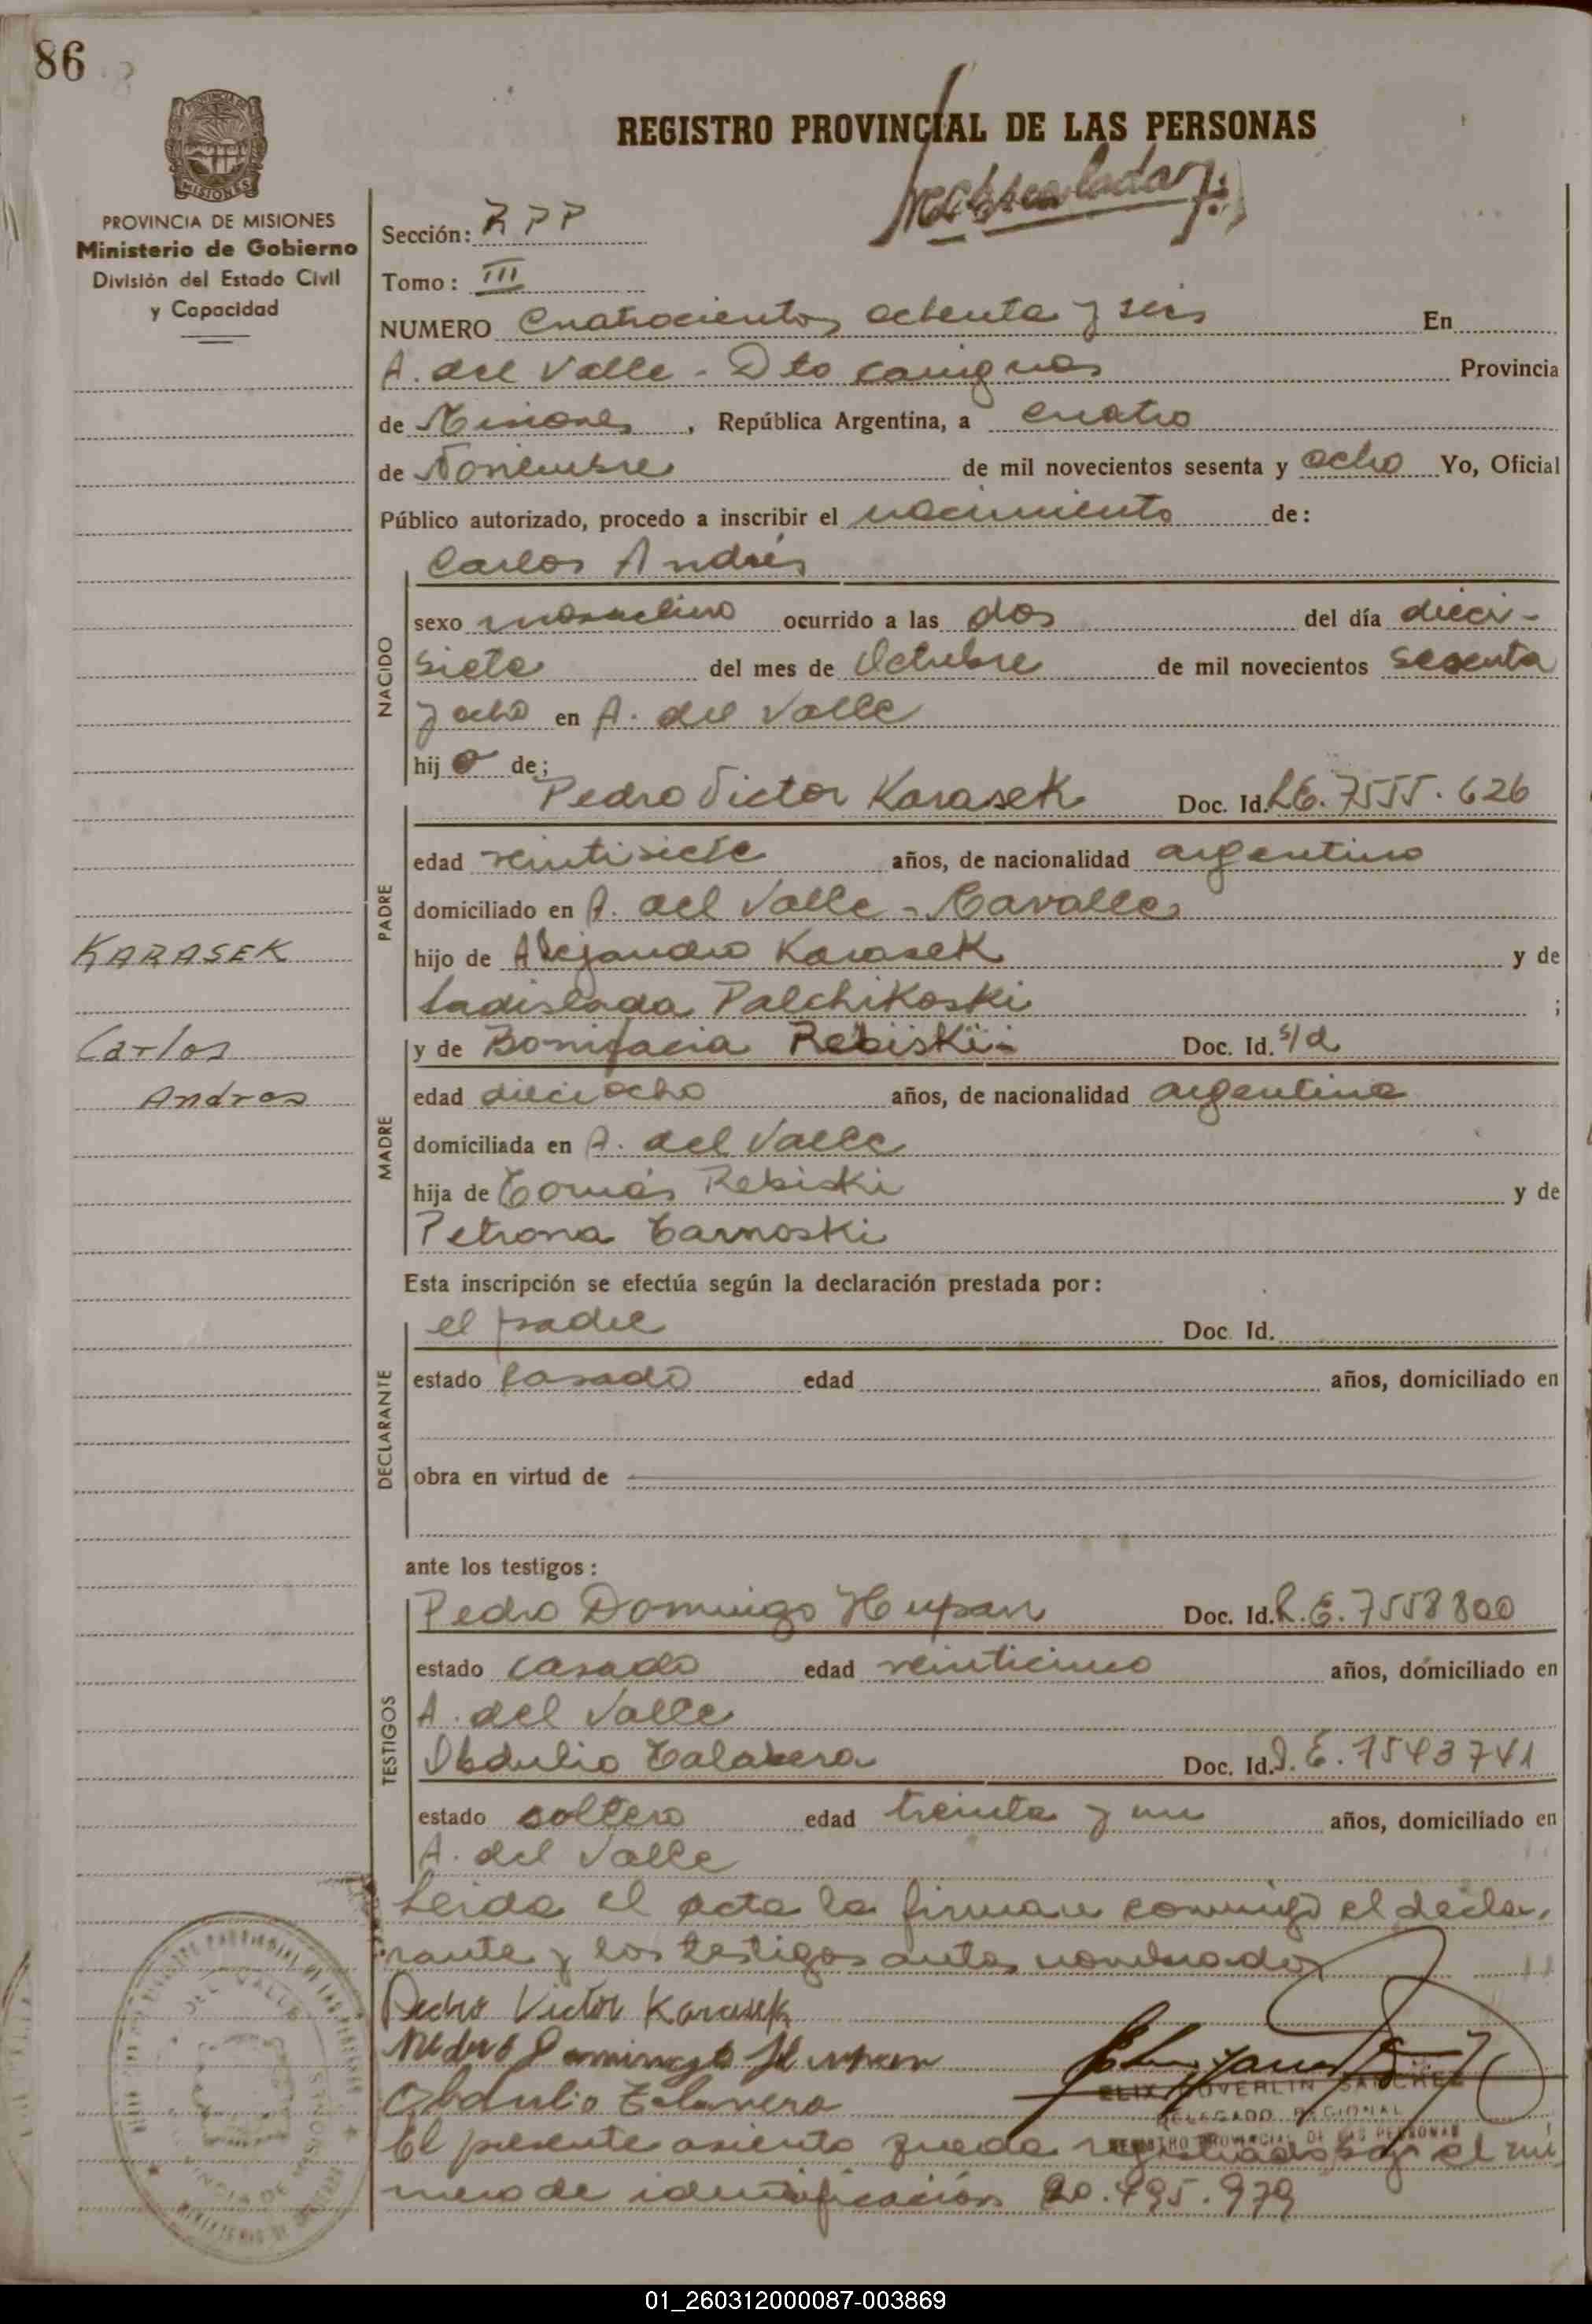 86
REGISTRO PROVINCIAL DE LAS PERSONAS
PROVINCIA DE MISIONES
Ministerio de Gobierno
División del Estado Civil
y Capacidad
Sección: RPP
Tomo: III
NUMERO Cuatrocientos ochenta y seis En
A. del Valle - Dto cainguas Provincia
de Misiones, República Argentina, a cuatro
de Noviembre de mil novecientos sesenta y ocho Yo, Oficial
Público autorizado, procedo a inscribir el nacimiento de:
Carlos Andrés
NACIDO
sexo masculino ocurrido a las dos del día dieci-
siete del mes de Octubre de mil novecientos sesenta
y ocho en A. del Valle
hij o de;
Pedro Victor Karasek Doc. Id. L.E. 7555.626
PADRE
edad veintisiete años, de nacionalidad argentino
domiciliado en A. del Valle -
hijo de Alejandro Karasek y de
Ladislada Palchikoski ;
KARASEK
Carlos
Andres
y de Bonifacia Rebiski Doc. Id. s/d
MADRE
edad dieciocho años, de nacionalidad argentina
domiciliada en A. del Valle
hija de Tomás Rebiski y de
Petrona Tarnoski
Esta inscripción se efectúa según la declaración prestada por:
DECLARANTE
el padre Doc. Id.
estado Casado edad años, domiciliado en
obra en virtud de
ante los testigos:
TESTIGOS
Pedro Domingo Hupan Doc. Id. L.E. 7558800
estado casado edad veinticinco años, domiciliado en
A. del Valle
Obdulio Talavera Doc. Id. L.E. 7543741
estado soltero edad treinta y un años, domiciliado en
A. del Valle
Leida el acta la firman conmigo el decla-
rante y los testigos antes nombrados
Pedro Victor Karasek
Pedro Domingo Hupan
Obdulio Talavera
ELIX GOVERLIN SANCHEZ
DELEGADO REGIONAL
REGISTRO PROVINCIAL DE LAS PERSONAS
El presente asiento queda registrado bajo el nú
mero de identificación 20.495.979
01_260312000087-003869